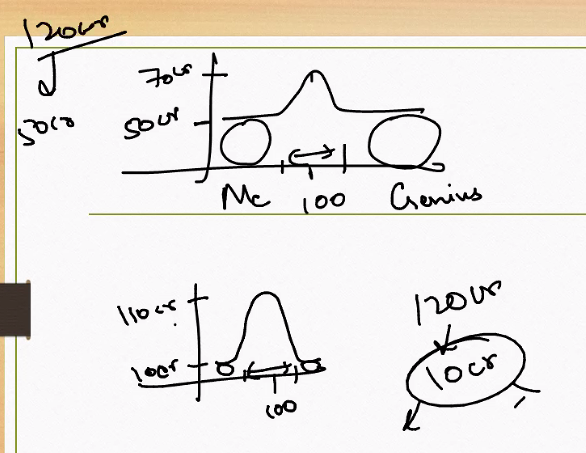 120cr
50cr
70cr
50cr
Mc 100 Genius
110cr
10cr
100
120cr
10cr